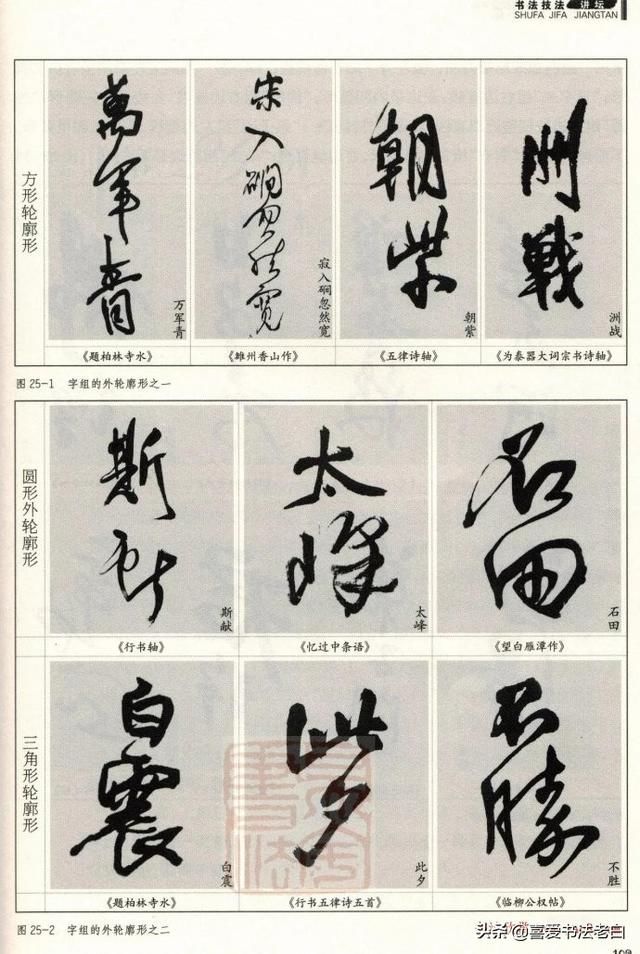 书法技法 讲坛
SHUFA JIFA JIANGTAN
方形轮廓形
萬军青
万军青
《题柏林寺水》
寂入硐忽然宽
寂入硐忽然宽
《雒州香山作》
朝紫
朝紫
《五律诗轴》
洲戰
洲战
《为泰器大词宗书诗轴》
图 25-1 字组的外轮廓形之一
圆形外轮廓形
斯献
斯献
《行书轴》
太峰
太峰
《忆过中条语》
石田
石田
《望白雁潭作》
三角形轮廓形
白震
白震
《题柏林寺水》
此夕
此夕
《行书五律诗五首》
不勝
不胜
《临柳公权帖》
图 25-2 字组的外轮廓形之二
头条 @喜爱书法老白
109